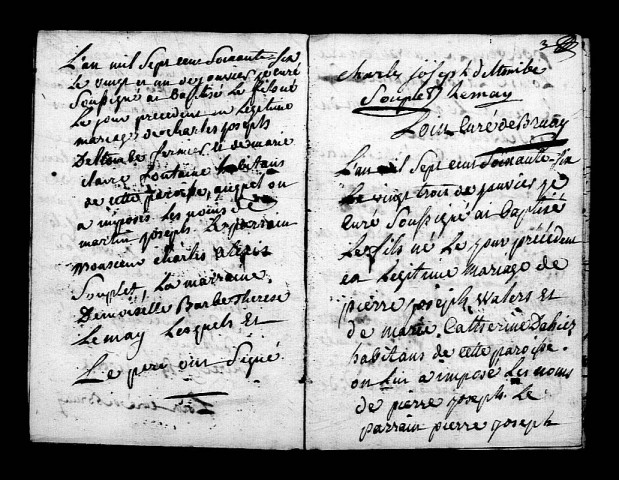 L'an mil Sept cens Soixante six
Le vingt et un de janvier je curé
Soussigné ai Baptisé Le fils né
Le jour precedent en Legitime
mariage de charles joseph
Delcombe fermier et de marie
claire fontaine habitans
de cette paroisse, auquel on
a imposés Les noms de
martin joseph. Le parrain
Monsieur charles alexis
Souplet, La marraine,
Demoiselle Barbe Therese
Lemay Lesquels Et
Le pere ont Signé.
3
charles joseph
Souplet Lemay
Curé de Bruay
L'an mil Sept cens Soixante-six
Le vingt trois de janvier je
Curé Soussigné ai Baptisé
Le fils né Le jour précédent
en Légitime mariage de
pierre joseph Walers Et
de marie Catherine
habitans de cette paroisse.
on Lui a imposé Les noms
de pierre joseph. Le
parrain pierre joseph